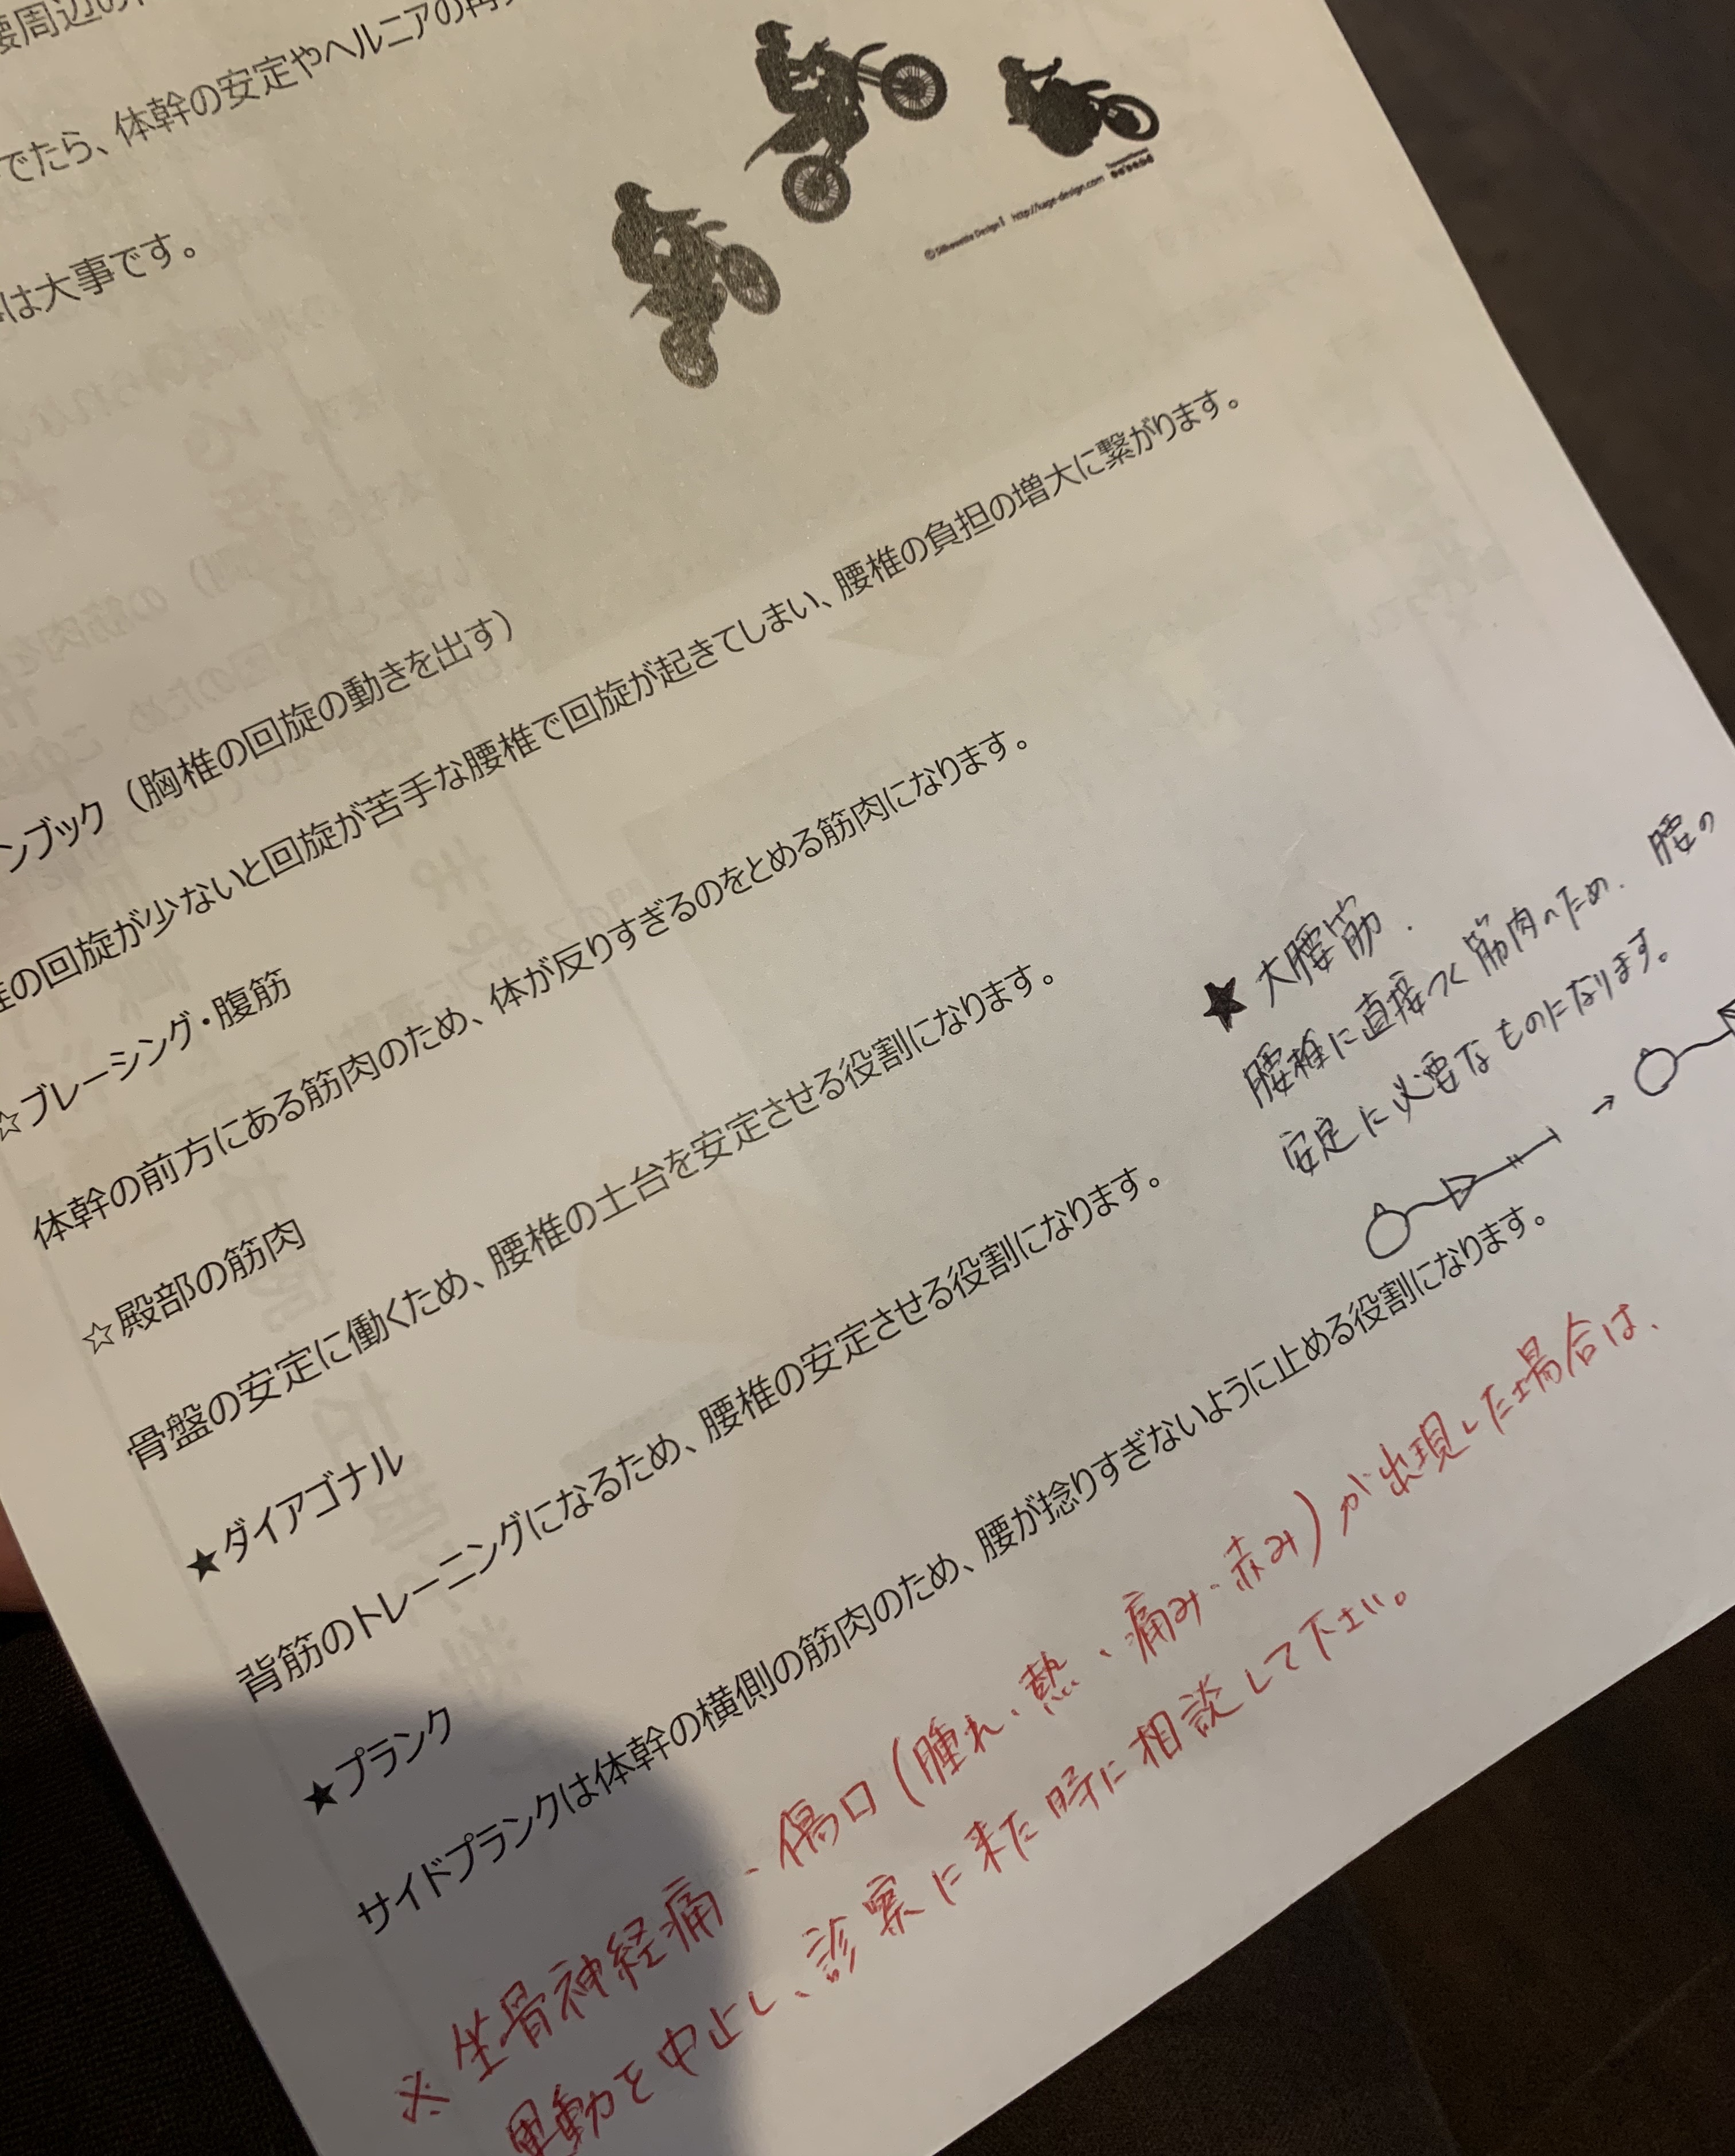 腰周辺の
でたら、体幹の安定やヘルニアの再
は大事です。
© Silhouette Design http://kage-design.com
ンブック（胸椎の回旋の動きを出す）
の回旋が少ないと回旋が苦手な腰椎で回旋が起きてしまい、腰椎の負担の増大に繋がります。
☆ブレーシング・腹筋
体幹の前方にある筋肉のため、体が反りすぎるのをとめる筋肉になります。
☆殿部の筋肉
骨盤の安定に働くため、腰椎の土台を安定させる役割になります。
★ダイアゴナル
背筋のトレーニングになるため、腰椎の安定させる役割になります。
★プランク
サイドプランクは体幹の横側の筋肉のため、腰が捻りすぎないように止める役割になります。
★大腰筋.
腰椎に直接つく筋肉のため. 腰の
安定に必要なものになります。
※坐骨神経痛、傷口(腫れ、熱、痛み・赤み)が出現した場合は、
運動を中止し、診察に来た時に相談して下さい。